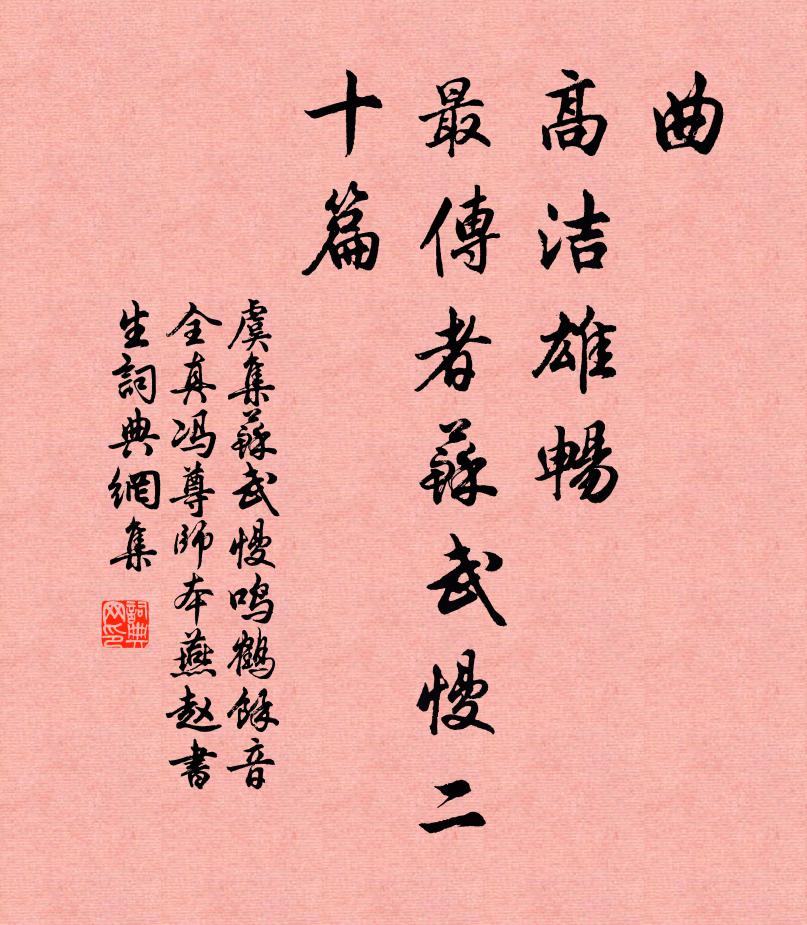 曲
高洁雄畅
最傳者蘇武慢二
十篇
虞集蘇武慢鸣鶴餘音
全真冯尊師本燕赵書
生詞典網集
詞典
网印